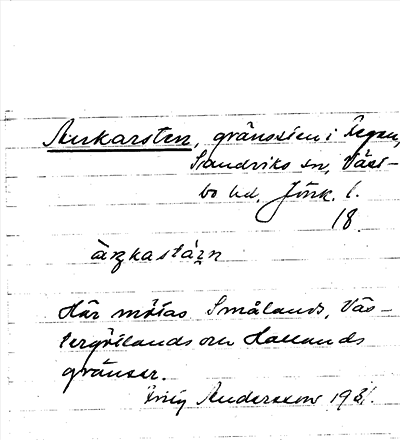 Ankarsten, gränssten i Fegen,
Sandviks sn, Väst-
bo hd, Jönk. l.
18
àŋkastá̱rn
Här mötas Smålands, Väs-
tergötlands och Hallands
gränser.
Stig Andersson 1931.